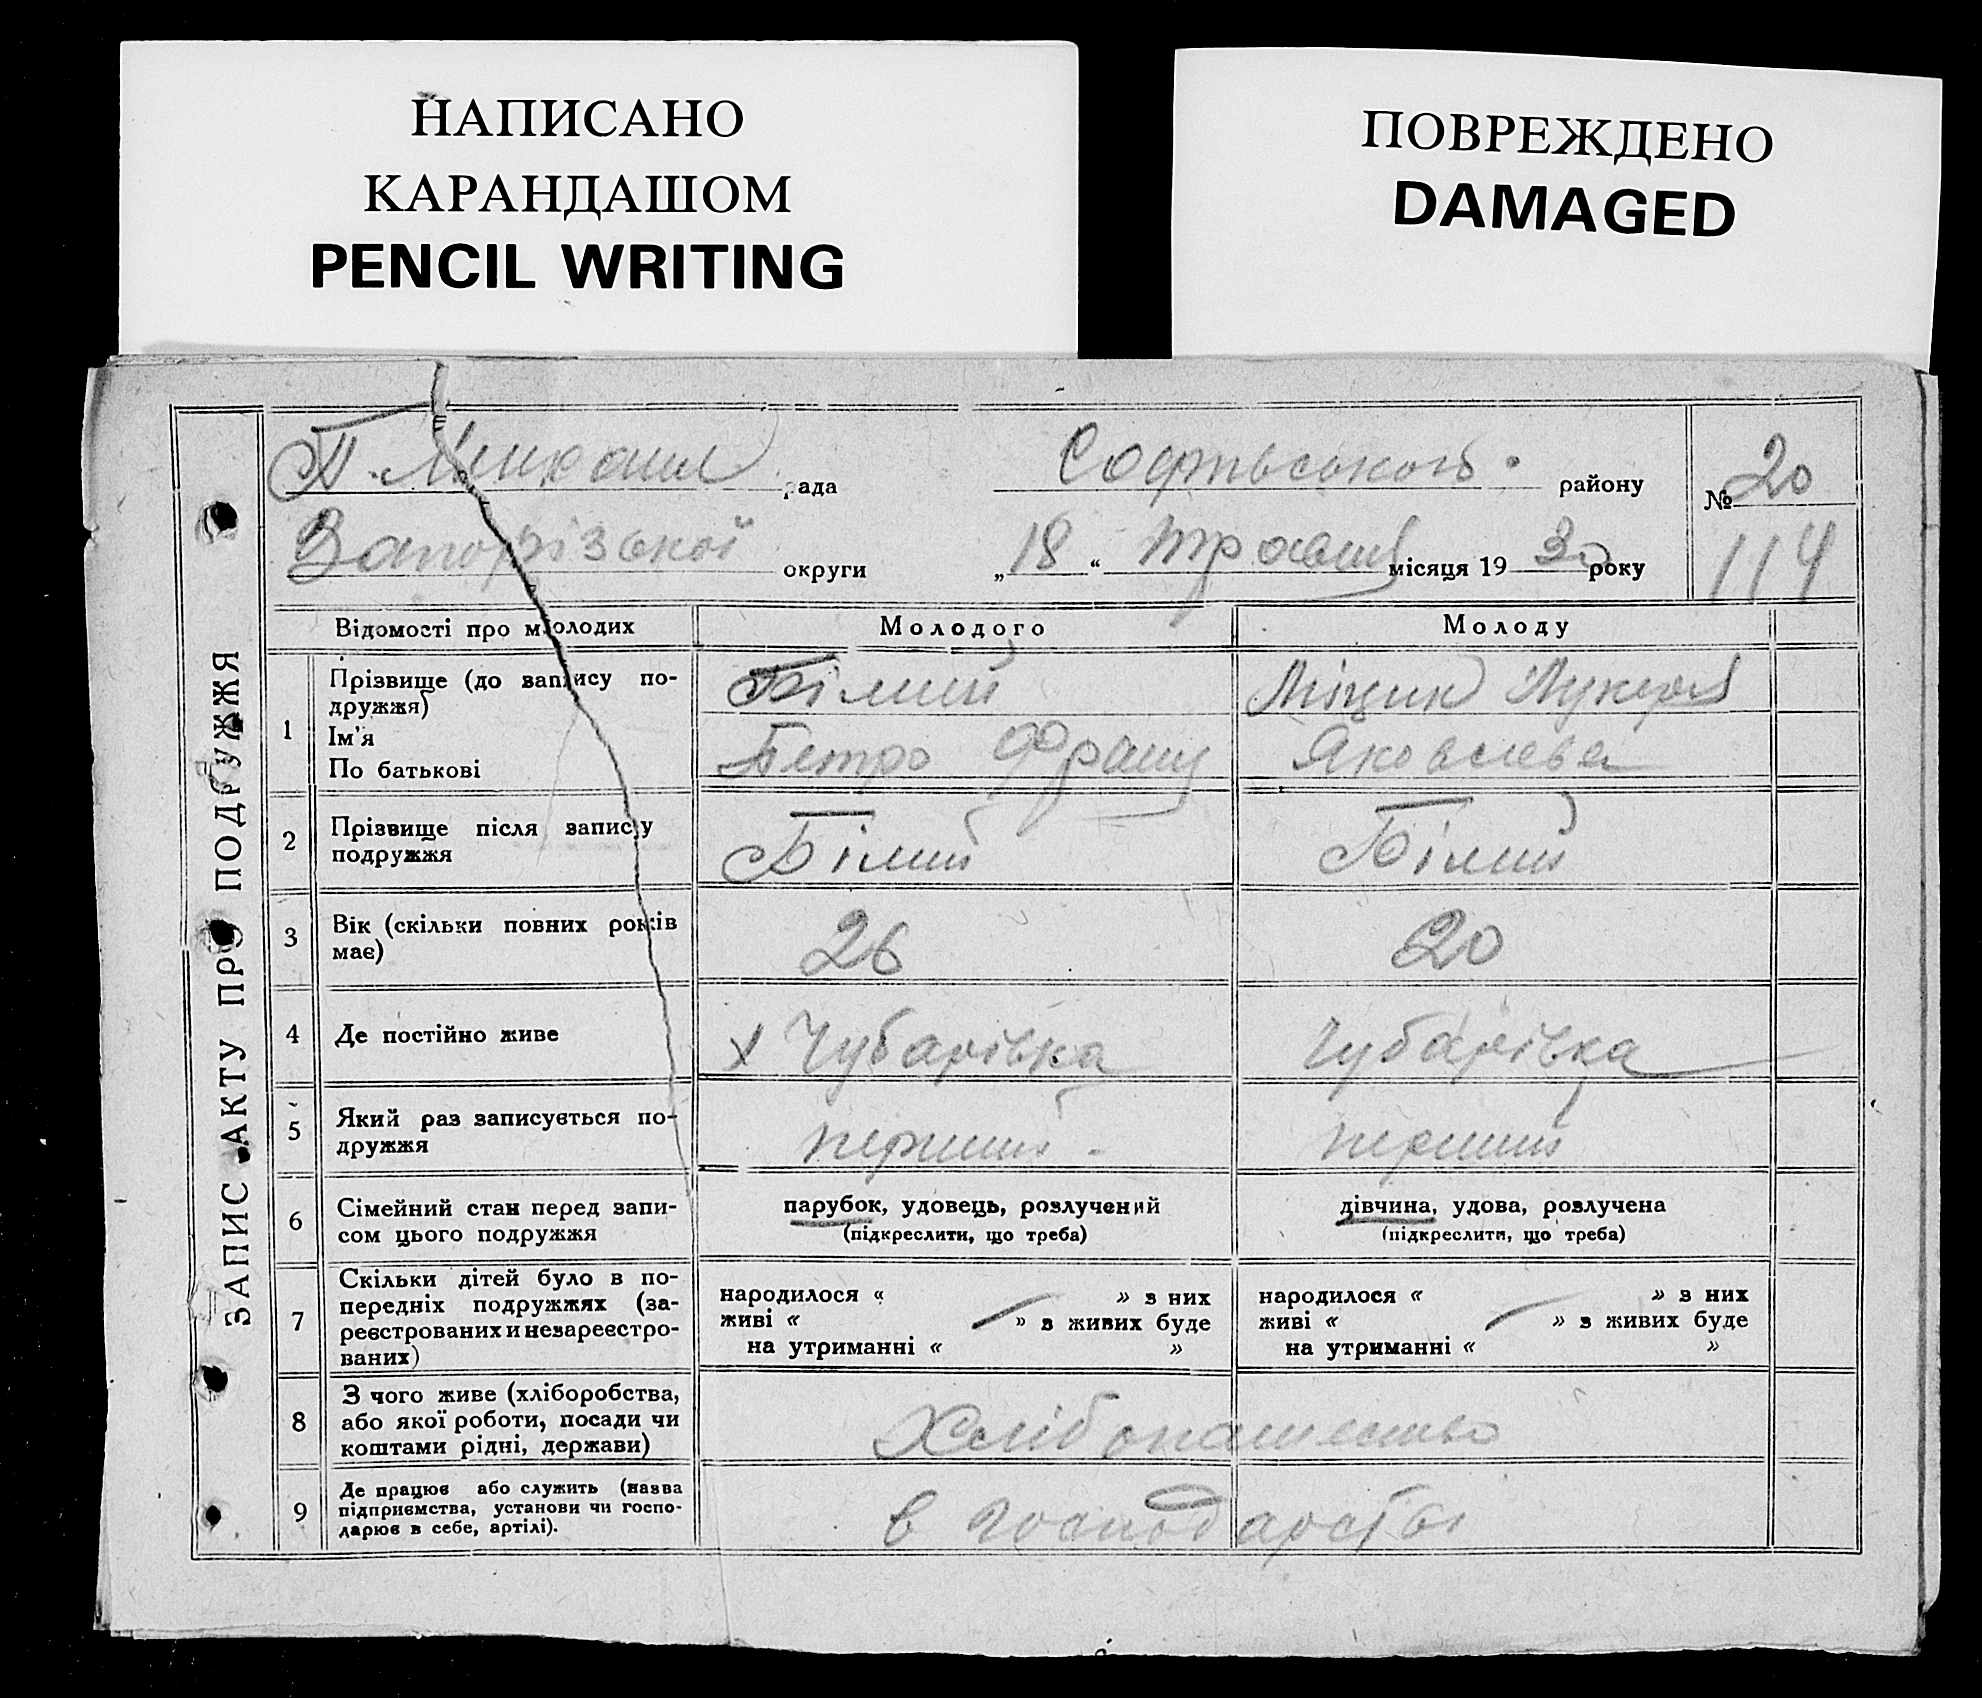 НАПИСАНО
КАРАНДАШОМ
PENCIL WRITING
ПОВРЕЖДЕНО
DAMAGED
ЗАПИС АКТУ ПРО ПОДРУЖЖЯ
рада
району
№ 20
Запорізької округи
„ 18 “ травня місяця 19 30 року
114
Відомості про молодих
Молодого
Молоду
1
Прізвище (до запису по-
дружжя)
Ім'я
По батькові
Білий
Петро
Яковлева
2
Прізвище після запису
подружжя
Білий
Білий
3
Вік (скільки повних років
має)
26
20
4
Де постійно живе
Чубарівка
Чубарівка
5
Який раз записується по-
дружжя
перший
перший
6
Сімейний стан перед запи-
сом цього подружжя
парубок, удовець, розлучений
(підкреслити, що треба)
дівчина, удова, розлучена
(підкреслити, що треба)
7
Скільки дітей було в по-
передніх подружжях (за-
реєстрованих и незареєстро-
ваних)
народилося “ ” з них
живі “ ” з живих буде
на утриманні “ ”
народилося “ ” з них
живі “ ” з живих буде
на утриманні “ ”
8
З чого живе (хліборобства,
або якої роботи, посади чи
коштами рідні, держави)
Хлібопашество
9
Де працює або служить (назва
підприємства, установи чи госпо-
дарює в себе, артілі).
в господарстві